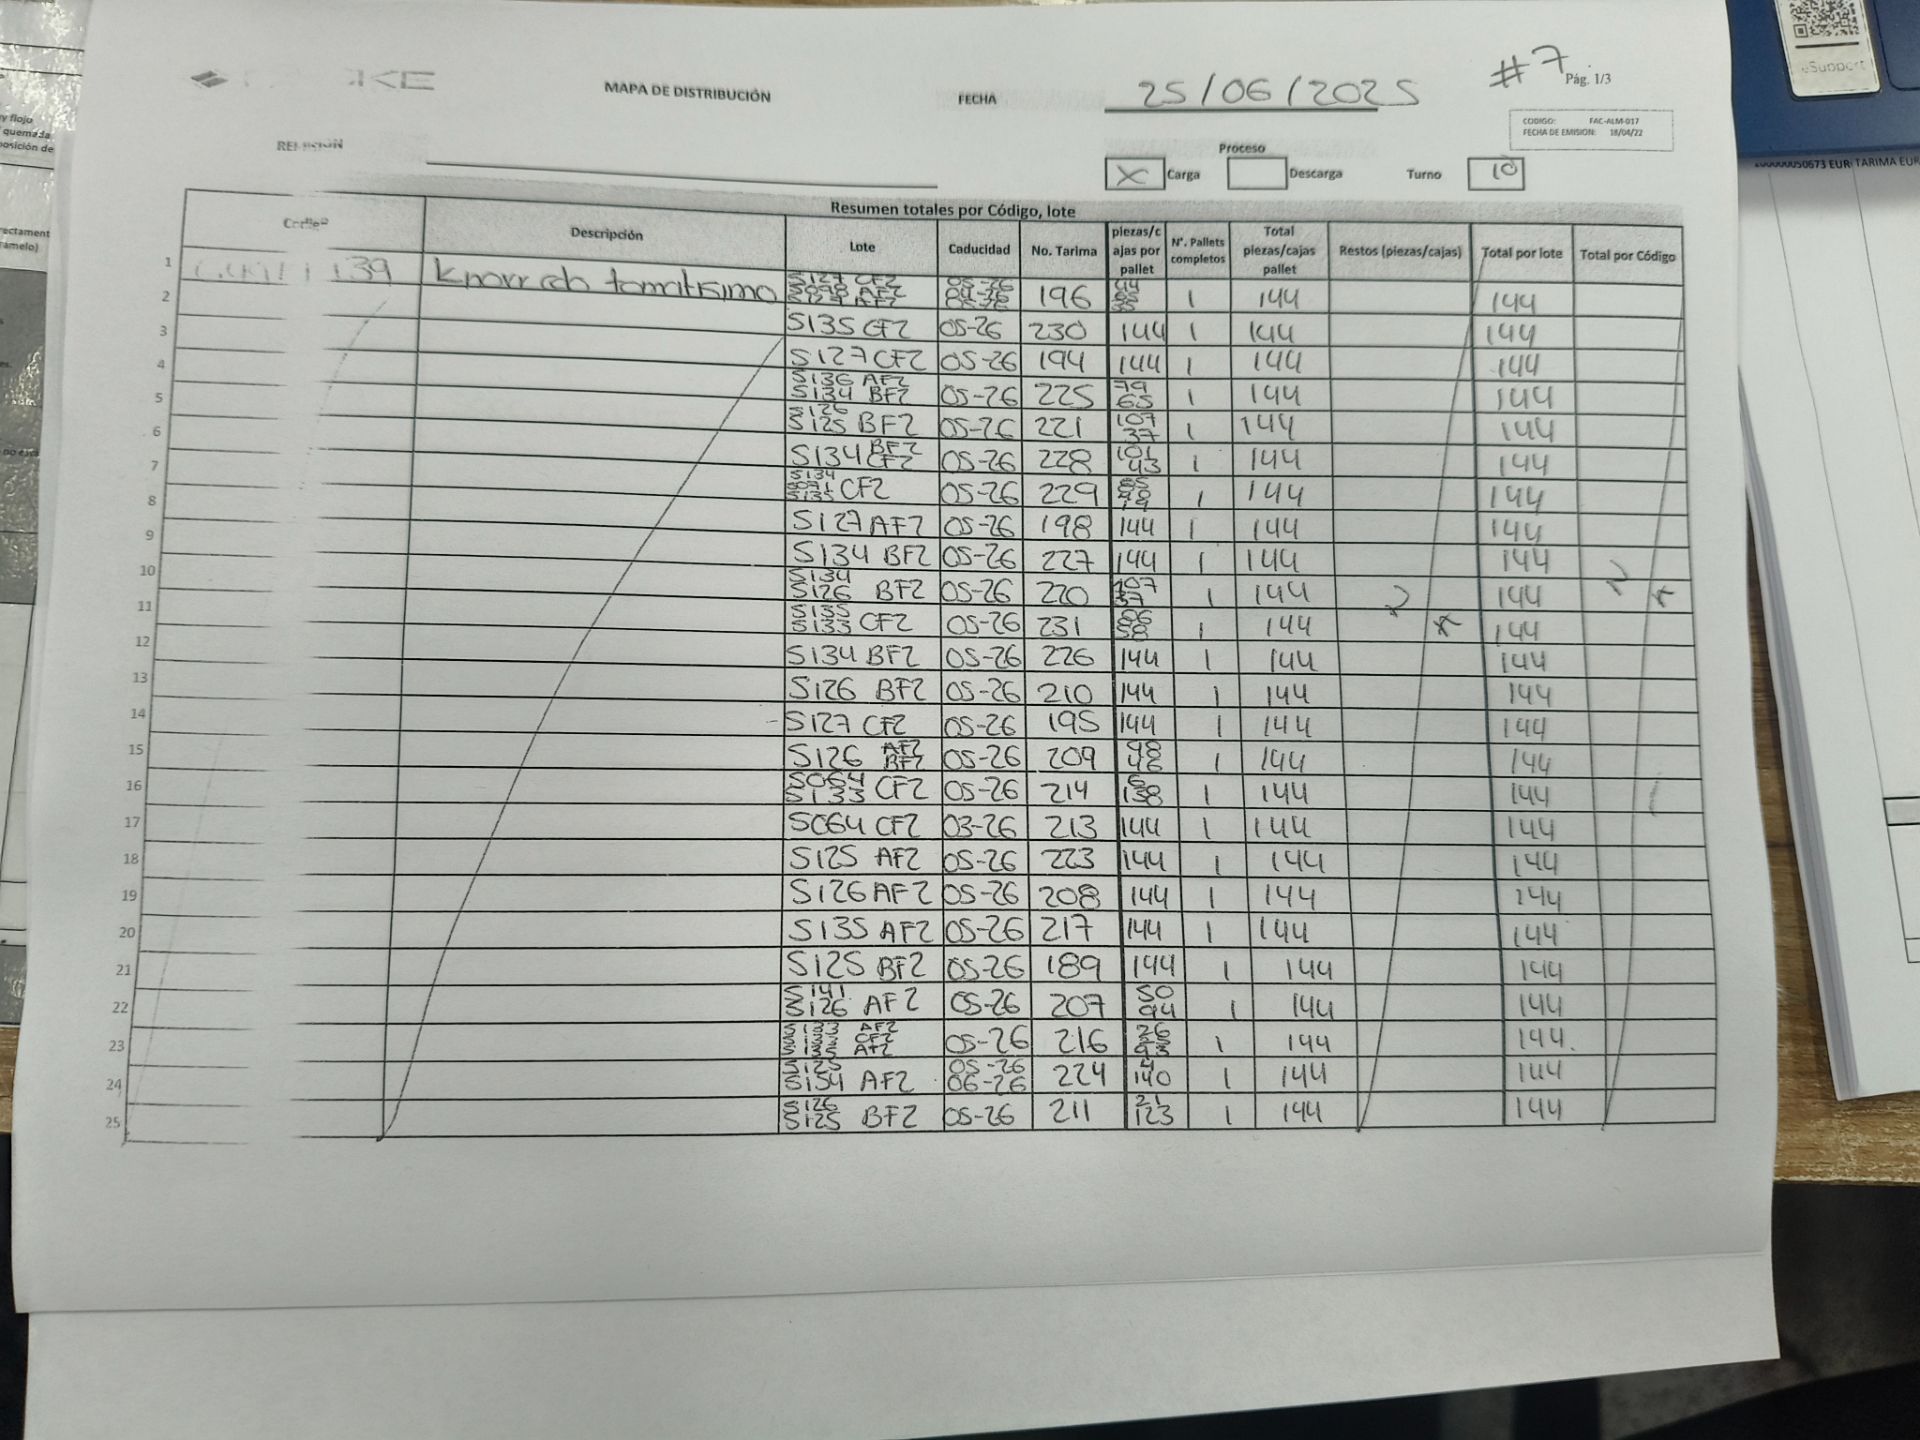 #7
MAPA DE DISTRIBUCIÓN FECHA 25/06/2025 Pág. 1/3
CODIGO: FAC-ALM-017
FECHA DE EMISION: 18/04/22
Proceso
X Carga Descarga Turno 10
Resumen totales por Código, lote
Descripción Lote Caducidad No. Tarima piezas/cajas por pallet N°. Pallets completos Total piezas/cajas pallet Restos (piezas/cajas) Total por lote Total por Código
1 139 Knorr cdo tomatisimo S127 CF2 05-26
2 196 1 144 144
3 S135 CF2 05-26 230 144 1 144 144
4 S127 CF2 05-26 194 144 1 144 144
5 S136 AF2 S134 BF2 05-26 225 79 65 1 144 144
6 S126 S125 BF2 05-26 221 107 37 1 144 144
7 S134 BF2 CF2 05-26 228 101 43 1 144 144
8 S134 S135 CF2 05-26 229 1 144 144
9 S127 AF2 05-26 198 144 1 144 144
10 S134 BF2 05-26 227 144 1 144 144
11 S134 S126 BF2 05-26 220 107 37 1 144 144
12 S135 S133 CF2 05-26 231 86 58 1 144 144
13 S134 BF2 05-26 226 144 1 144 144
14 S126 BF2 05-26 210 144 1 144 144
15 S127 CF2 05-26 195 144 1 144 144
16 S126 AF2 BF2 05-26 209 98 46 1 144 144
17 S064 S133 CF2 05-26 214 6 138 1 144 144
18 S064 CF2 03-26 213 144 1 144 144
19 S125 AF2 05-26 223 144 1 144 144
20 S126 AF2 05-26 208 144 1 144 144
21 S135 AF2 05-26 217 144 1 144 144
22 S125 BF2 05-26 189 144 1 144 144
23 S141 S126 AF2 05-26 207 50 94 1 144 144
24 S133 AF2 S133 CF2 S135 AF2 05-26 216 26 1 144 144
25 S125 S154 AF2 05-26 06-26 224 4 140 1 144 144
S126 S125 BF2 05-26 211 21 123 1 144 144
eSupport
TARIMA EUR